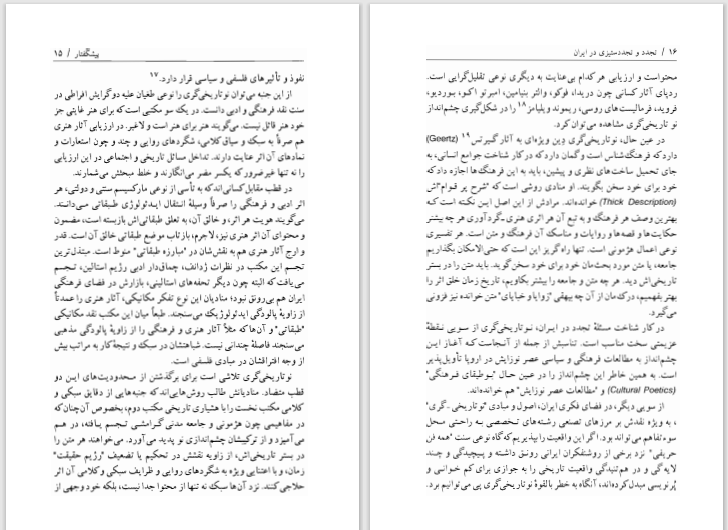 پیشگفتار / ۱۵
نفوذ و تأثیرهای فلسفی و سیاسی قرار دارد.۱۷
از این جنبه می‌توان نوتاریخی‌گری را نوعی طغیان علیه دوگرایش افراطی در
سنت نقد فرهنگی و ادبی دانست. در یک سو مکتبی است که برای هنر غایتی جز
خود هنر قائل نیست. می‌گویند هنر برای هنر است و لاغیر. در ارزیابی آثار هنری
هم صرفاً به سبک و سیاق کلامی، شگردهای روایی و چند و چون استعارات و
نمادهای آن اثر عنایت دارند. تداخل مسائل تاریخی و اجتماعی در این ارزیابی
را نه تنها غیرضرور که یکسر مضر می‌انگارند و خلط مبحثش می‌شمارند.
در قطب مقابل کسانی‌اند که به تأسی از نوعی مارکسیسم سنتی و دولتی، هر
اثر ادبی و فرهنگی را صرفاً وسیلهٔ انتقال ایدئولوژی طبقاتی می‌دانند.
می‌گویند هویت هر اثر، و خالق آن، به تعلق طبقاتی‌اش بازبسته است، مضمون
و محتوای آن اثر هنری نیز، لاجرم، بازتاب موضع طبقاتی خالق آن است. قدر
و ارج آثار هنری هم به نقش‌شان در "مبارزه طبقاتی" منوط است. مبتذل‌ترین
تجسم این مکتب در نظرات ژدانف، چماق‌دار ادبی رژیم استالین، تجسم
می‌یافت که البته چون دیگر تحفه‌های استالینی، بازارش در فضای فرهنگی
ایران هم بی‌رونق نبود؛ منادیان این نوع تفکر مکانیکی، آثار هنری را عمدتاً
از زاویهٔ پالودگی ایدئولوژیک می‌سنجند. طبعاً میان این مکتب نقد مکانیکی
"طبقاتی" و آن‌ها که مثلاً آثار هنری و فرهنگی را از زاویهٔ پالودگی مذهبی
می‌سنجند فاصلهٔ چندانی نیست. شباهتشان در سبک و نتیجهٔ کار به مراتب بیش
از وجه افتراقشان در مبادی فلسفی است.
نوتاریخی‌گری تلاشی است برای برگذشتن از محدودیت‌های این دو
قطب متضاد. منادیانش طالب روش‌هایی‌اند که جنبه‌هایی از دقایق سبکی و
کلامی مکتب نخست را با هشیاری تاریخی مکتب دوم، بخصوص آن‌چنان‌که
در مفاهیمی چون هژمونی و جامعه مدنی گرامشی تجسم یافته، در هم
می‌آمیزد و از ترکیبشان چشم‌اندازی نو پدید می‌آورد. می‌خواهند هر متن را
در بستر تاریخی‌اش، از زاویه نقشش در تحکیم یا تضعیف "رژیم حقیقت"
زمان، و با اعتنایی ویژه به شگردهای روایی و ظرایف سبکی و کلامی آن اثر
حلاجی کنند. نزد آن‌ها سبک نه تنها از محتوا جدا نیست، بلکه خود وجهی از
۱۶ / تجدد و تجددستیزی در ایران
محتواست و ارزیابی هر کدام بی‌عنایت به دیگری نوعی تقلیل‌گرایی است.
ردپای آثار کسانی چون دریدا، فوکو، والتر بنیامین، امبرتو اکو، بوردیو،
فروید، فرمالیست‌های روسی، ریموند ویلیامز۱۸ را در شکل‌گیری چشم‌انداز
نو تاریخی‌گری مشاهده می‌توان کرد.
در عین حال، نوتاریخی‌گری دین ویژه‌ای به آثار گیرتس۱۹ (Geertz)
دارد که فرهنگ‌شناس است و گمان دارد که در کار شناخت جوامع انسانی، به
جای تحمیل ساخت‌های نظری و پیشین، باید به این فرهنگ‌ها اجازه داد که
خود برای خود سخن بگویند. او منادی روشی است که "شرح پر قوام"اش
(Thick Description) خوانده‌اند. مرادش از این اصل این نکته است که
بهترین وصف هر فرهنگ و به تبع آن هر اثری هنری، گردآوری هر چه بیشتر
حکایت‌ها و قصه‌ها و روایات و مناسک آن فرهنگ و متن است. هر تفسیری
نوعی اعمال هژمونی است. تنها راه گریز این است که حتی‌الامکان بگذاریم
جامعه، یا متن مورد بحث‌مان خود برای خود سخن گوید. باید متن را در بستر
تاریخی‌اش دید. هر چه متن و جامعه را بیشتر بکاویم، تاریخ زمان خلق اثر را
بهتر بفهمیم، درک‌مان از آن چه بیهقی "زوایا و خبایای" متن خوانده نیز فزونی
می‌گیرد.
در کار شناخت مسئلهٔ تجدد در ایران، نوتاریخی‌گری از سویی نقطهٔ
عزیمتی سخت مناسب است. تناسبش از جمله از آنجاست که آغاز این
چشم‌انداز به مطالعات فرهنگی و سیاسی عصر نوزایش در اروپا تأویل‌پذیر
است. به همین خاطر این چشم‌انداز را در عین حال "بوطیقای فرهنگی"
(Cultural Poetics) و "مطالعات عصر نوزایش" هم خوانده‌اند.
از سویی دیگر، در فضای فکری ایران، اصول و مبادی "نوتاریخی ـ گری"
، به ویژه نقدش بر مرزهای تصنعی رشته‌های تخصصی به راحتی محل
سوءتفاهم می‌تواند بود. اگر این واقعیت را بپذیریم که گاه نوعی سنت "همه فن
حریفی" نزد برخی از روشنفکران ایرانی رونق داشته و پیچیدگی و چند
لایه‌گی و در هم‌تنیدگی واقعیت تاریخی را به جوازی برای کم خوانی و
پُرنویسی مبدل کرده‌اند، آنگاه به خطر بالقوهٔ نوتاریخی‌گری پی می‌توانیم برد.